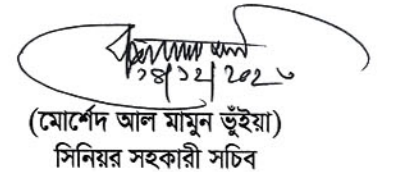 ১৪/১২/২০২৩
(মোর্শেদ আল মামুন ভূঁইয়া)
সিনিয়র সহকারী সচিব